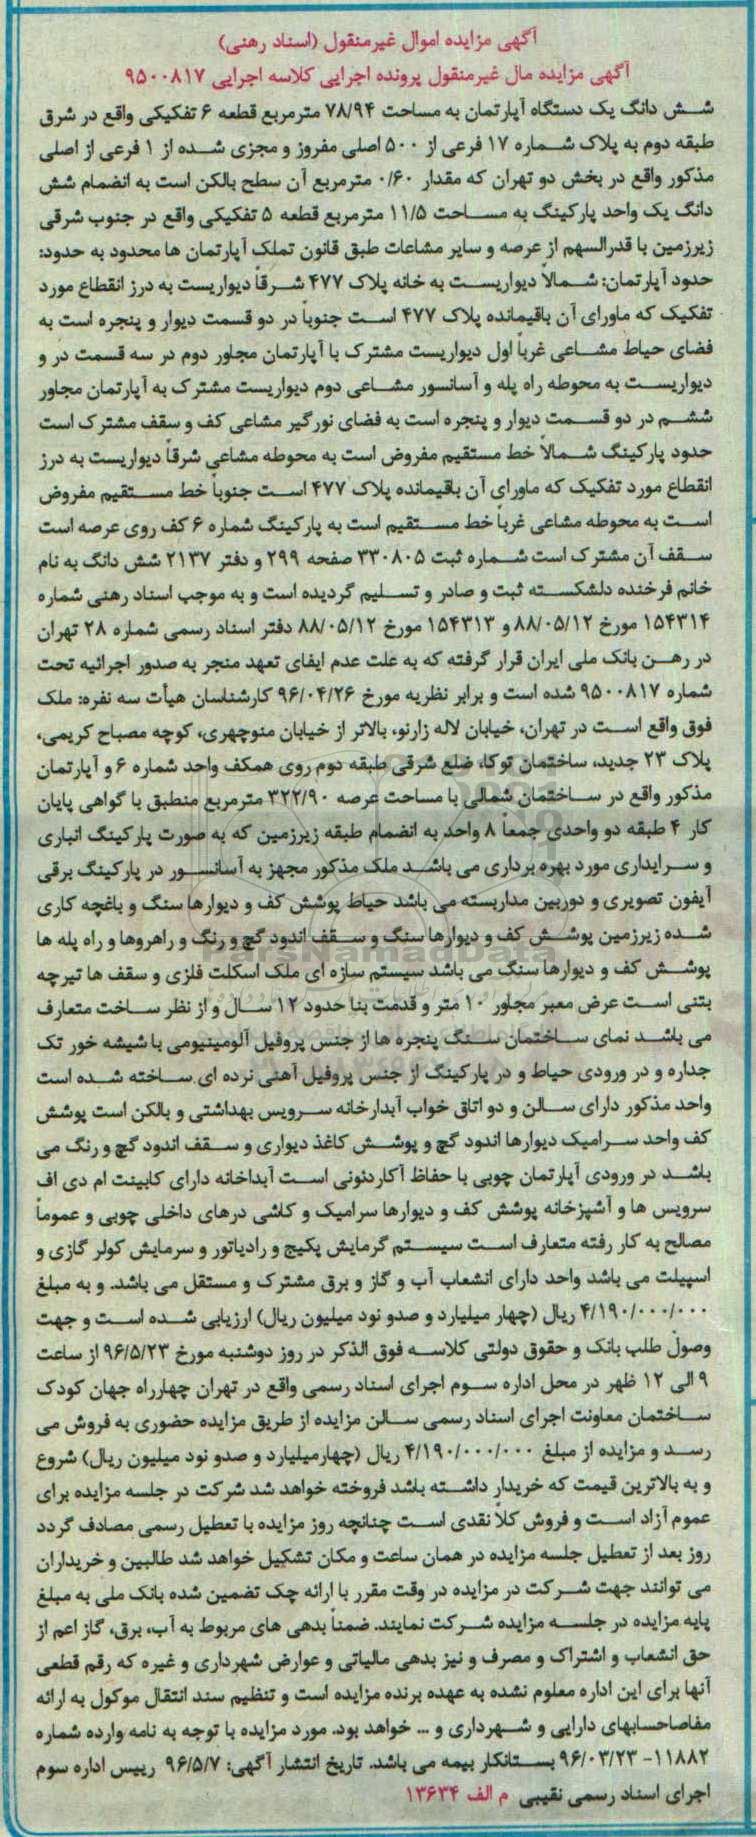 آگهی مزایده اموال غیرمنقول (اسناد رهنی)
آگهی مزایده مال غیرمنقول پرونده اجرایی کلاسه اجرایی ۹۵۰۰۸۱۷
شش دانگ یک دستگاه آپارتمان به مساحت ۷۸/۹۴ مترمربع قطعه ۶ تفکیکی واقع در شرق
طبقه دوم به پلاک شماره ۱۷ فرعی از ۵۰۰ اصلی مفروز و مجزی شده از ۱ فرعی از اصلی
مذکور واقع در بخش دو تهران که مقدار ۰/۶۰ مترمربع آن سطح بالکن است به انضمام شش
دانگ یک واحد پارکینگ به مساحت ۱۱/۵ مترمربع قطعه ۵ تفکیکی واقع در جنوب شرقی
زیرزمین با قدرالسهم از عرصه و سایر مشاعات طبق قانون تملک آپارتمان ها محدود به حدود:
حدود آپارتمان: شمالاً دیواریست به خانه پلاک ۴۷۷ شرقاً دیواریست به درز انقطاع مورد
تفکیک که ماورای آن باقیمانده پلاک ۴۷۷ است جنوباً در دو قسمت دیوار و پنجره است به
فضای حیاط مشاعی غرباً اول دیواریست مشترک با آپارتمان مجاور دوم در سه قسمت در و
دیواریست به محوطه راه پله و آسانسور مشاعی دوم دیواریست مشترک به آپارتمان مجاور
ششم در دو قسمت دیوار و پنجره است به فضای نورگیر مشاعی کف و سقف مشترک است
حدود پارکینگ شمالاً خط مستقیم مفروض است به محوطه مشاعی شرقاً دیواریست به درز
انقطاع مورد تفکیک که ماورای آن باقیمانده پلاک ۴۷۷ است جنوباً خط مستقیم مفروض
است به محوطه مشاعی غرباً خط مستقیم است به پارکینگ شماره ۶ کف روی عرصه است
سقف آن مشترک است شماره ثبت ۳۳۰۸۰۵ صفحه ۲۹۹ و دفتر ۲۱۳۷ شش دانگ به نام
خانم فرخنده دلشکسته ثبت و صادر و تسلیم گردیده است و به موجب اسناد رهنی شماره
۱۵۴۳۱۴ مورخ ۸۸/۰۵/۱۲ و ۱۵۴۳۱۳ مورخ ۸۸/۰۵/۱۲ دفتر اسناد رسمی شماره ۲۸ تهران
در رهن بانک ملی ایران قرار گرفته که به علت عدم ایفای تعهد منجر به صدور اجرائیه تحت
شماره ۹۵۰۰۸۱۷ شده است و برابر نظریه مورخ ۹۶/۰۴/۲۶ کارشناسان هیأت سه نفره: ملک
فوق واقع است در تهران، خیابان لاله زارنو، بالاتر از خیابان منوچهری، کوچه مصباح کریمی،
پلاک ۲۳ جدید، ساختمان توکا، ضلع شرقی طبقه دوم روی همکف واحد شماره ۶ و آپارتمان
مذکور واقع در ساختمان شمالی با مساحت عرصه ۳۲۲/۹۰ مترمربع منطبق با گواهی پایان
کار ۴ طبقه دو واحدی جمعاً ۸ واحد به انضمام طبقه زیرزمین که به صورت پارکینگ انباری
و سرایداری مورد بهره برداری می باشد ملک مذکور مجهز به آسانسور در پارکینگ برقی
آیفون تصویری و دوربین مداربسته می باشد حیاط پوشش کف و دیوارها سنگ و باغچه کاری
شده زیرزمین پوشش کف و دیوارها سنگ و سقف اندود گچ و رنگ و راهروها و راه پله ها
پوشش کف و دیوارها سنگ می باشد سیستم سازه ای ملک اسکلت فلزی و سقف ها تیرچه
بتنی است عرض معبر مجاور ۱۰ متر و قدمت بنا حدود ۱۲ سال و از نظر ساخت متعارف
می باشد نمای ساختمان سنگ پنجره ها از جنس پروفیل آلومینیومی با شیشه خور تک
جداره و در ورودی حیاط و در پارکینگ از جنس پروفیل آهنی نرده ای ساخته شده است
واحد مذکور دارای سالن و دو اتاق خواب آبدارخانه سرویس بهداشتی و بالکن است پوشش
کف واحد سرامیک دیوارها اندود گچ و پوشش کاغذ دیواری و سقف اندود گچ و رنگ می
باشد در ورودی آپارتمان چوبی با حفاظ آکاردئونی است آبداخانه دارای کابینت ام دی اف
سرویس ها و آشپزخانه پوشش کف و دیوارها سرامیک و کاشی درهای داخلی چوبی و عموماً
مصالح به کار رفته متعارف است سیستم گرمایش پکیج و رادیاتور و سرمایش کولر گازی و
اسپیلت می باشد واحد دارای انشعاب آب و گاز و برق مشترک و مستقل می باشد. و به مبلغ
۴/۱۹۰/۰۰۰/۰۰۰ ریال (چهار میلیارد و صدو نود میلیون ریال) ارزیابی شده است و جهت
وصول طلب بانک و حقوق دولتی کلاسه فوق الذکر در روز دوشنبه مورخ ۹۶/۵/۲۳ از ساعت
۹ الی ۱۲ ظهر در محل اداره سوم اجرای اسناد رسمی واقع در تهران چهارراه جهان کودک
ساختمان معاونت اجرای اسناد رسمی سالن مزایده از طریق مزایده حضوری به فروش می
رسد و مزایده از مبلغ ۴/۱۹۰/۰۰۰/۰۰۰ ریال (چهارمیلیارد و صدو نود میلیون ریال) شروع
و به بالاترین قیمت که خریدار داشته باشد فروخته خواهد شد شرکت در جلسه مزایده برای
عموم آزاد است و فروش کلاً نقدی است چنانچه روز مزایده با تعطیل رسمی مصادف گردد
روز بعد از تعطیل جلسه مزایده در همان ساعت و مکان تشکیل خواهد شد طالبین و خریداران
می توانند جهت شرکت در مزایده در وقت مقرر با ارائه چک تضمین شده بانک ملی به مبلغ
پایه مزایده در جلسه مزایده شرکت نمایند. ضمناً بدهی های مربوط به آب، برق، گاز اعم از
حق انشعاب و اشتراک و مصرف و نیز بدهی مالیاتی و عوارض شهرداری و غیره که رقم قطعی
آنها برای این اداره معلوم نشده به عهده برنده مزایده است و تنظیم سند انتقال موکول به ارائه
مفاصاحسابهای دارایی و شهرداری و ... خواهد بود. مورد مزایده با توجه به نامه وارده شماره
۱۱۸۸۲- ۹۶/۰۳/۲۳ بستانکار بیمه می باشد. تاریخ انتشار آگهی: ۹۶/۵/۷ رییس اداره سوم
اجرای اسناد رسمی نقیبی م الف ۱۳۶۳۴
ParsNamadData